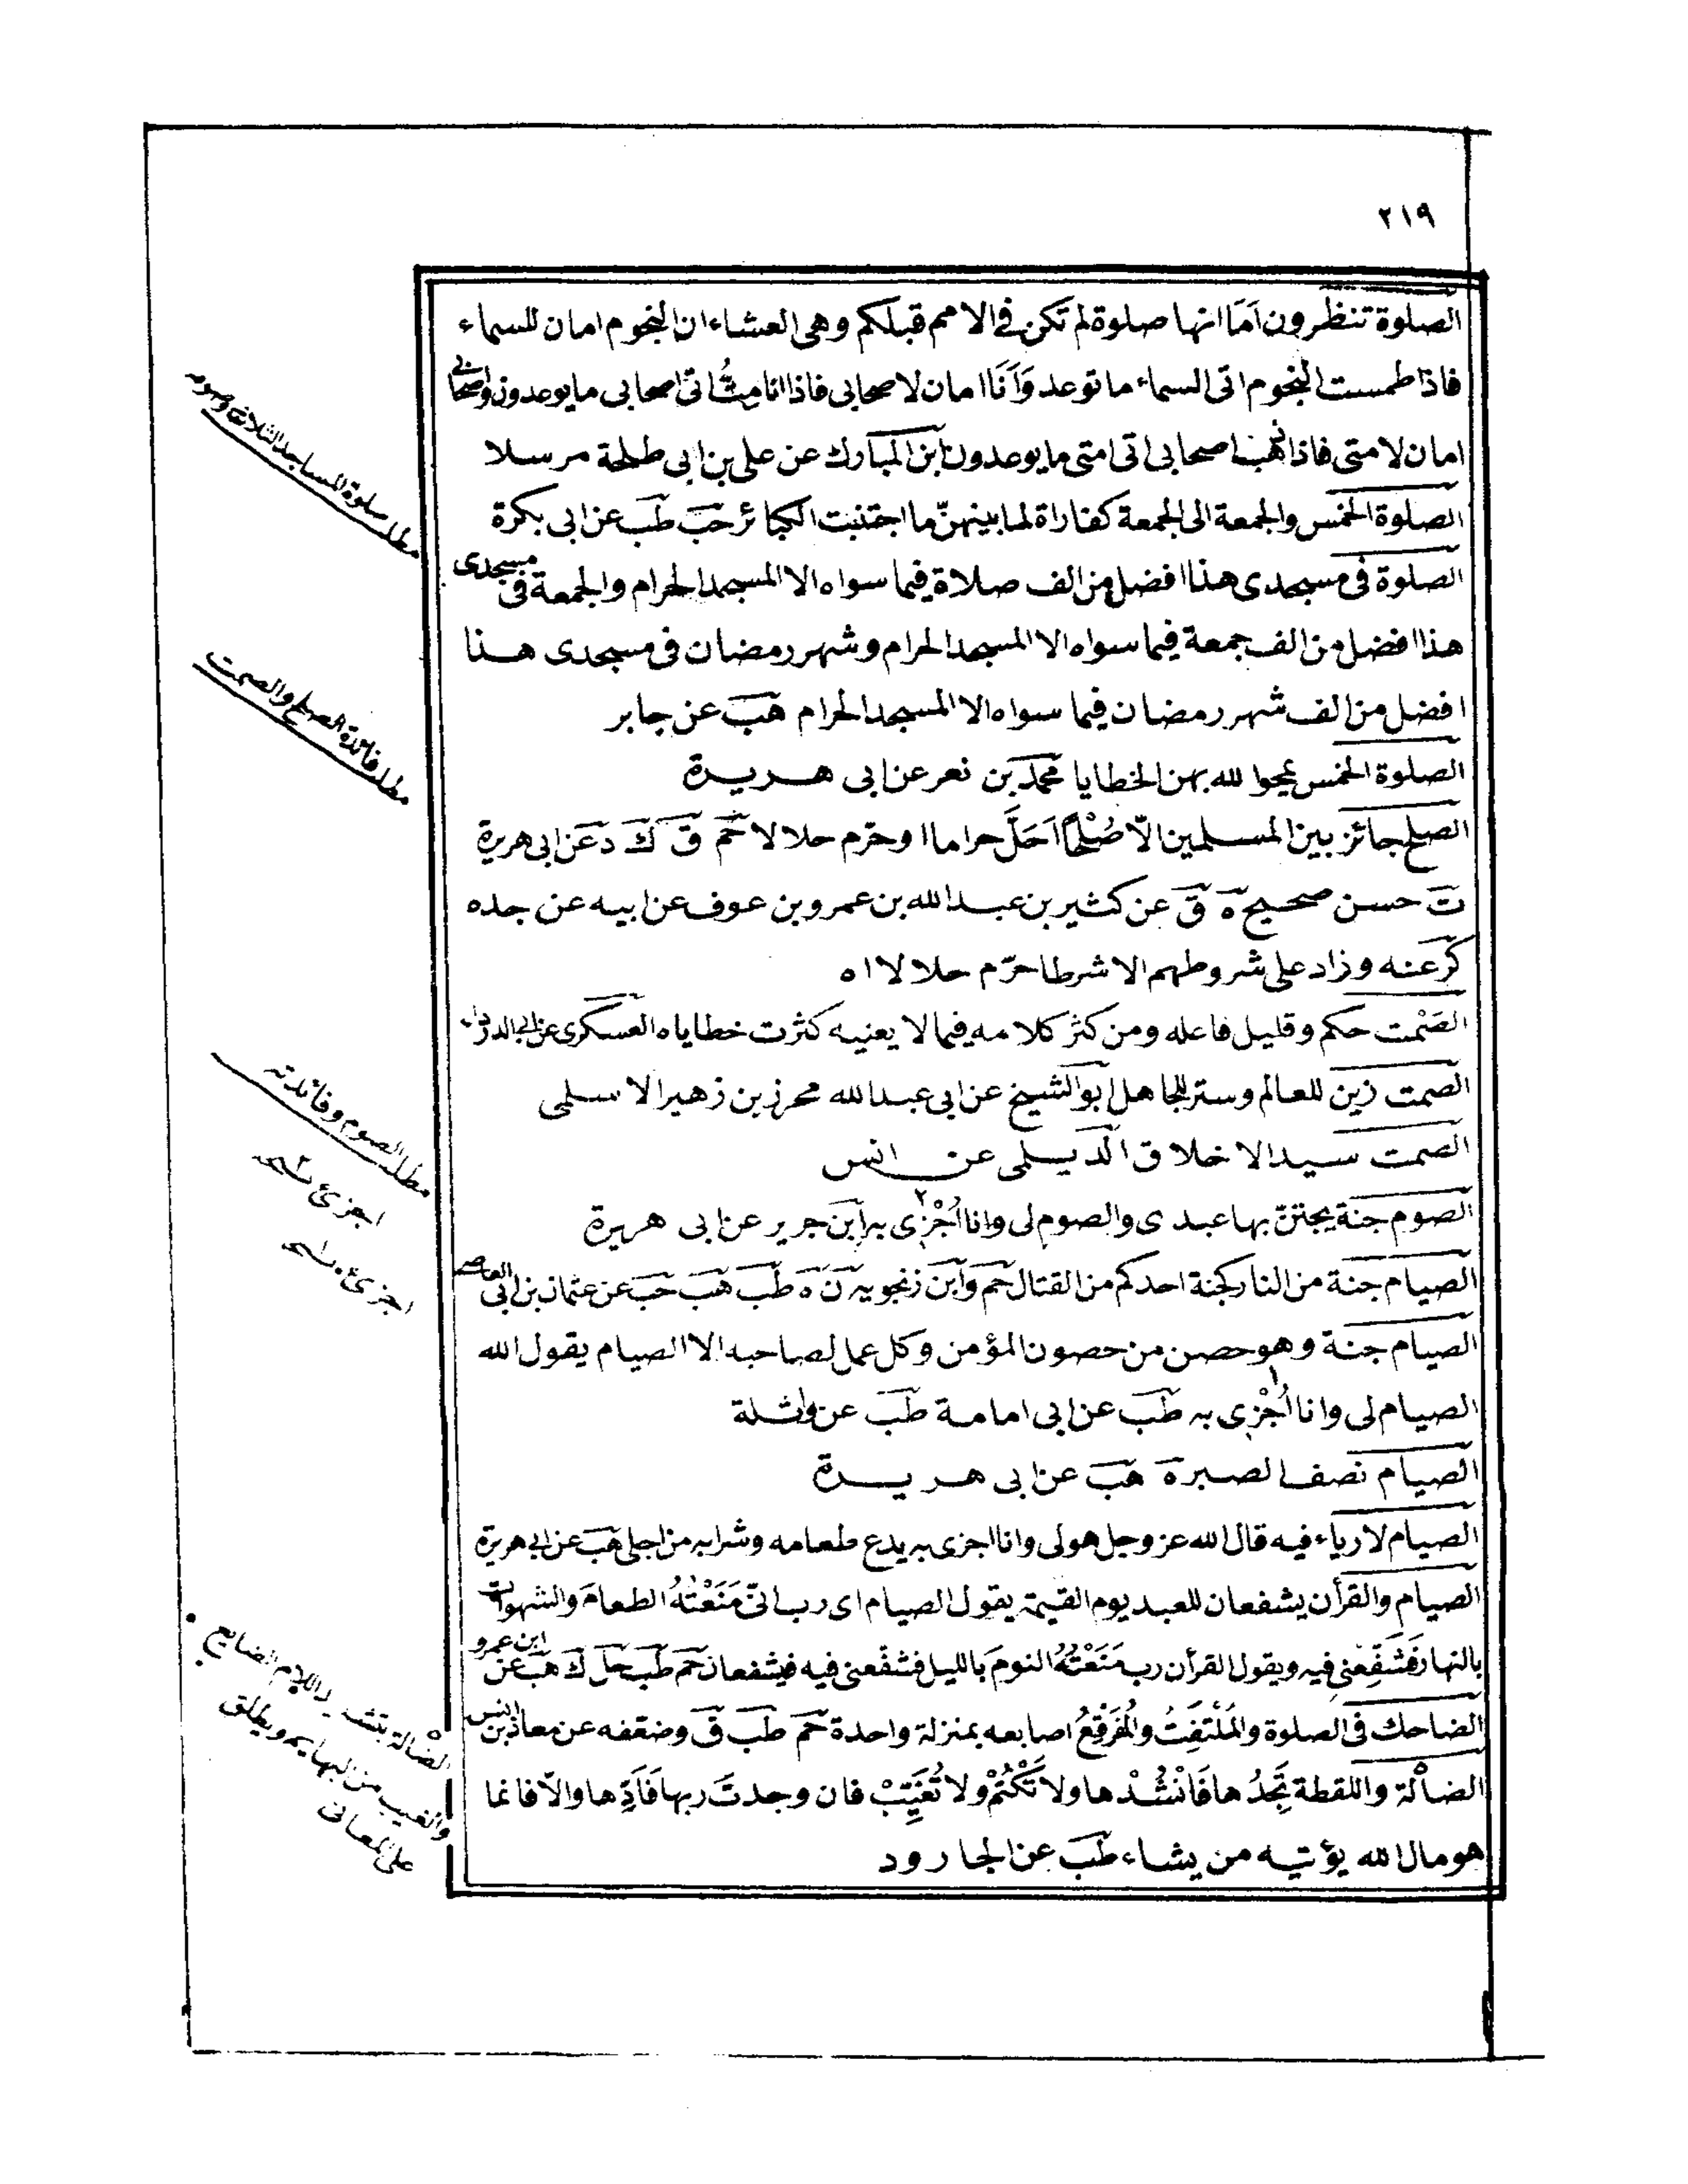 ٢١٩
الصلوة تنظرون اَمَا انها صلوة لم تكن فى الامم قبلكم وهى العشاء ان النجوم امان للسماء
فاذا طمست النجوم اتى السماء ما توعد وَاَنَا امان لاصحابى فاذا انا مِتُّ اتى اصحابى ما يوعدون واصحابى
امان لامتى فاذا ذهب اصحابى اتى امتى ما يوعدون ابن المبارك عن على بن ابى طلحة مرسلا
الصلوة الخمس والجمعة الى الجمعة كفاراة لما بينهنّ ما اجتنبت الكبائر حب طب عن ابى بكرة
الصلوة فى مسجدى هذا افضل من الف صلاة فيما سواه الا المسجد الحرام والجمعة فى مسجدى
هذا افضل من الف جمعة فيما سواه الا المسجد الحرام وشهر رمضان فى مسجدى هذا
افضل من الف شهر رمضان فيما سواه الا المسجد الحرام هب عن جابر
الصلوة الخمس يمحوا لله بهن الخطايا محمد بن نعر عن ابى هريرة
الصلح جائز بين المسلمين الّا صُلْحًا اَحَلَّ حراما او حرّم حلالا حم ق ك د عن ابى هريرة
ت حسن صحيح ه ق عن كثير بن عبد الله بن عمرو بن عوف عن ابيه عن جده
كر عنه وزاد على شروطهم الا شرطا حرّم حلالا اه
الصَمْت حكم وقليل فاعله ومن كثر كلامه فيما لا يعنيه كثرت خطاياه العسكرى عن ابى الدرداء
الصمت زين للعالم وستر للجاهل ابو الشيخ عن ابى عبد الله محرز بن زهير الاسلمى
الصمت سيد الاخلاق الديلمى عن انس
الصوم جنة يجتنّ بها عبدى والصوم لى وانا اُجْزِى به ابن جرير عن ابى هريرة
الصيام جنة من النار كجنة احدكم من القتال حم وابن زنجويه ن ه طب هب حب عن عثمان بن ابى العاص
الصيام جنة وهو حصن من حصون المؤمن وكل عمل لصاحبه الا الصيام يقول الله
الصيام لى وانا اُجْزِى به طب عن ابى امامة طب عن واثلة
الصيام نصف الصبر ه هب عن ابى هريرة
الصيام لا رياء فيه قال الله عز وجل هو لى وانا اجزى به يدع طعامه وشرابه من اجلى هب عن ابى هريرة
الصيام والقرأن يشفعان للعبد يوم القيمة يقول الصيام اى رب انّى مَنَعْتُهُ الطعامَ والشهوات
بالنهار فَشَفِّعْنى فيه ويقول القرأن رب مَنَعْتُهُ النومَ بالليل فشفّعنى فيه فيشفعان حم طب حل ك هب عن ابن عمرو
الضاحك فى الصلوة والمُلْتَفِتُ والمُفَرقِعُ اصابعه بمنزلة واحدة حم طب ق وضعّفه عن معاذ بن انس
الضالّة واللقطة تَجِدُها فَانْشُدْها ولا تَكْتُمْ ولا تُغَيِّبْ فان وجدتَ ربها فَاَدِّها والّا فانما
هو مال الله يؤتيه من يشاء طب عن الجارود
مطلب صلوة المساجد الثلاث
مطلب فائدة الصلح والصمت
مطلب الصوم وفائدته
اجزئ
اجزئ
الضّالة بتشديد اللام الضايع
والغيب من البهايم ويطلق
على المعانى